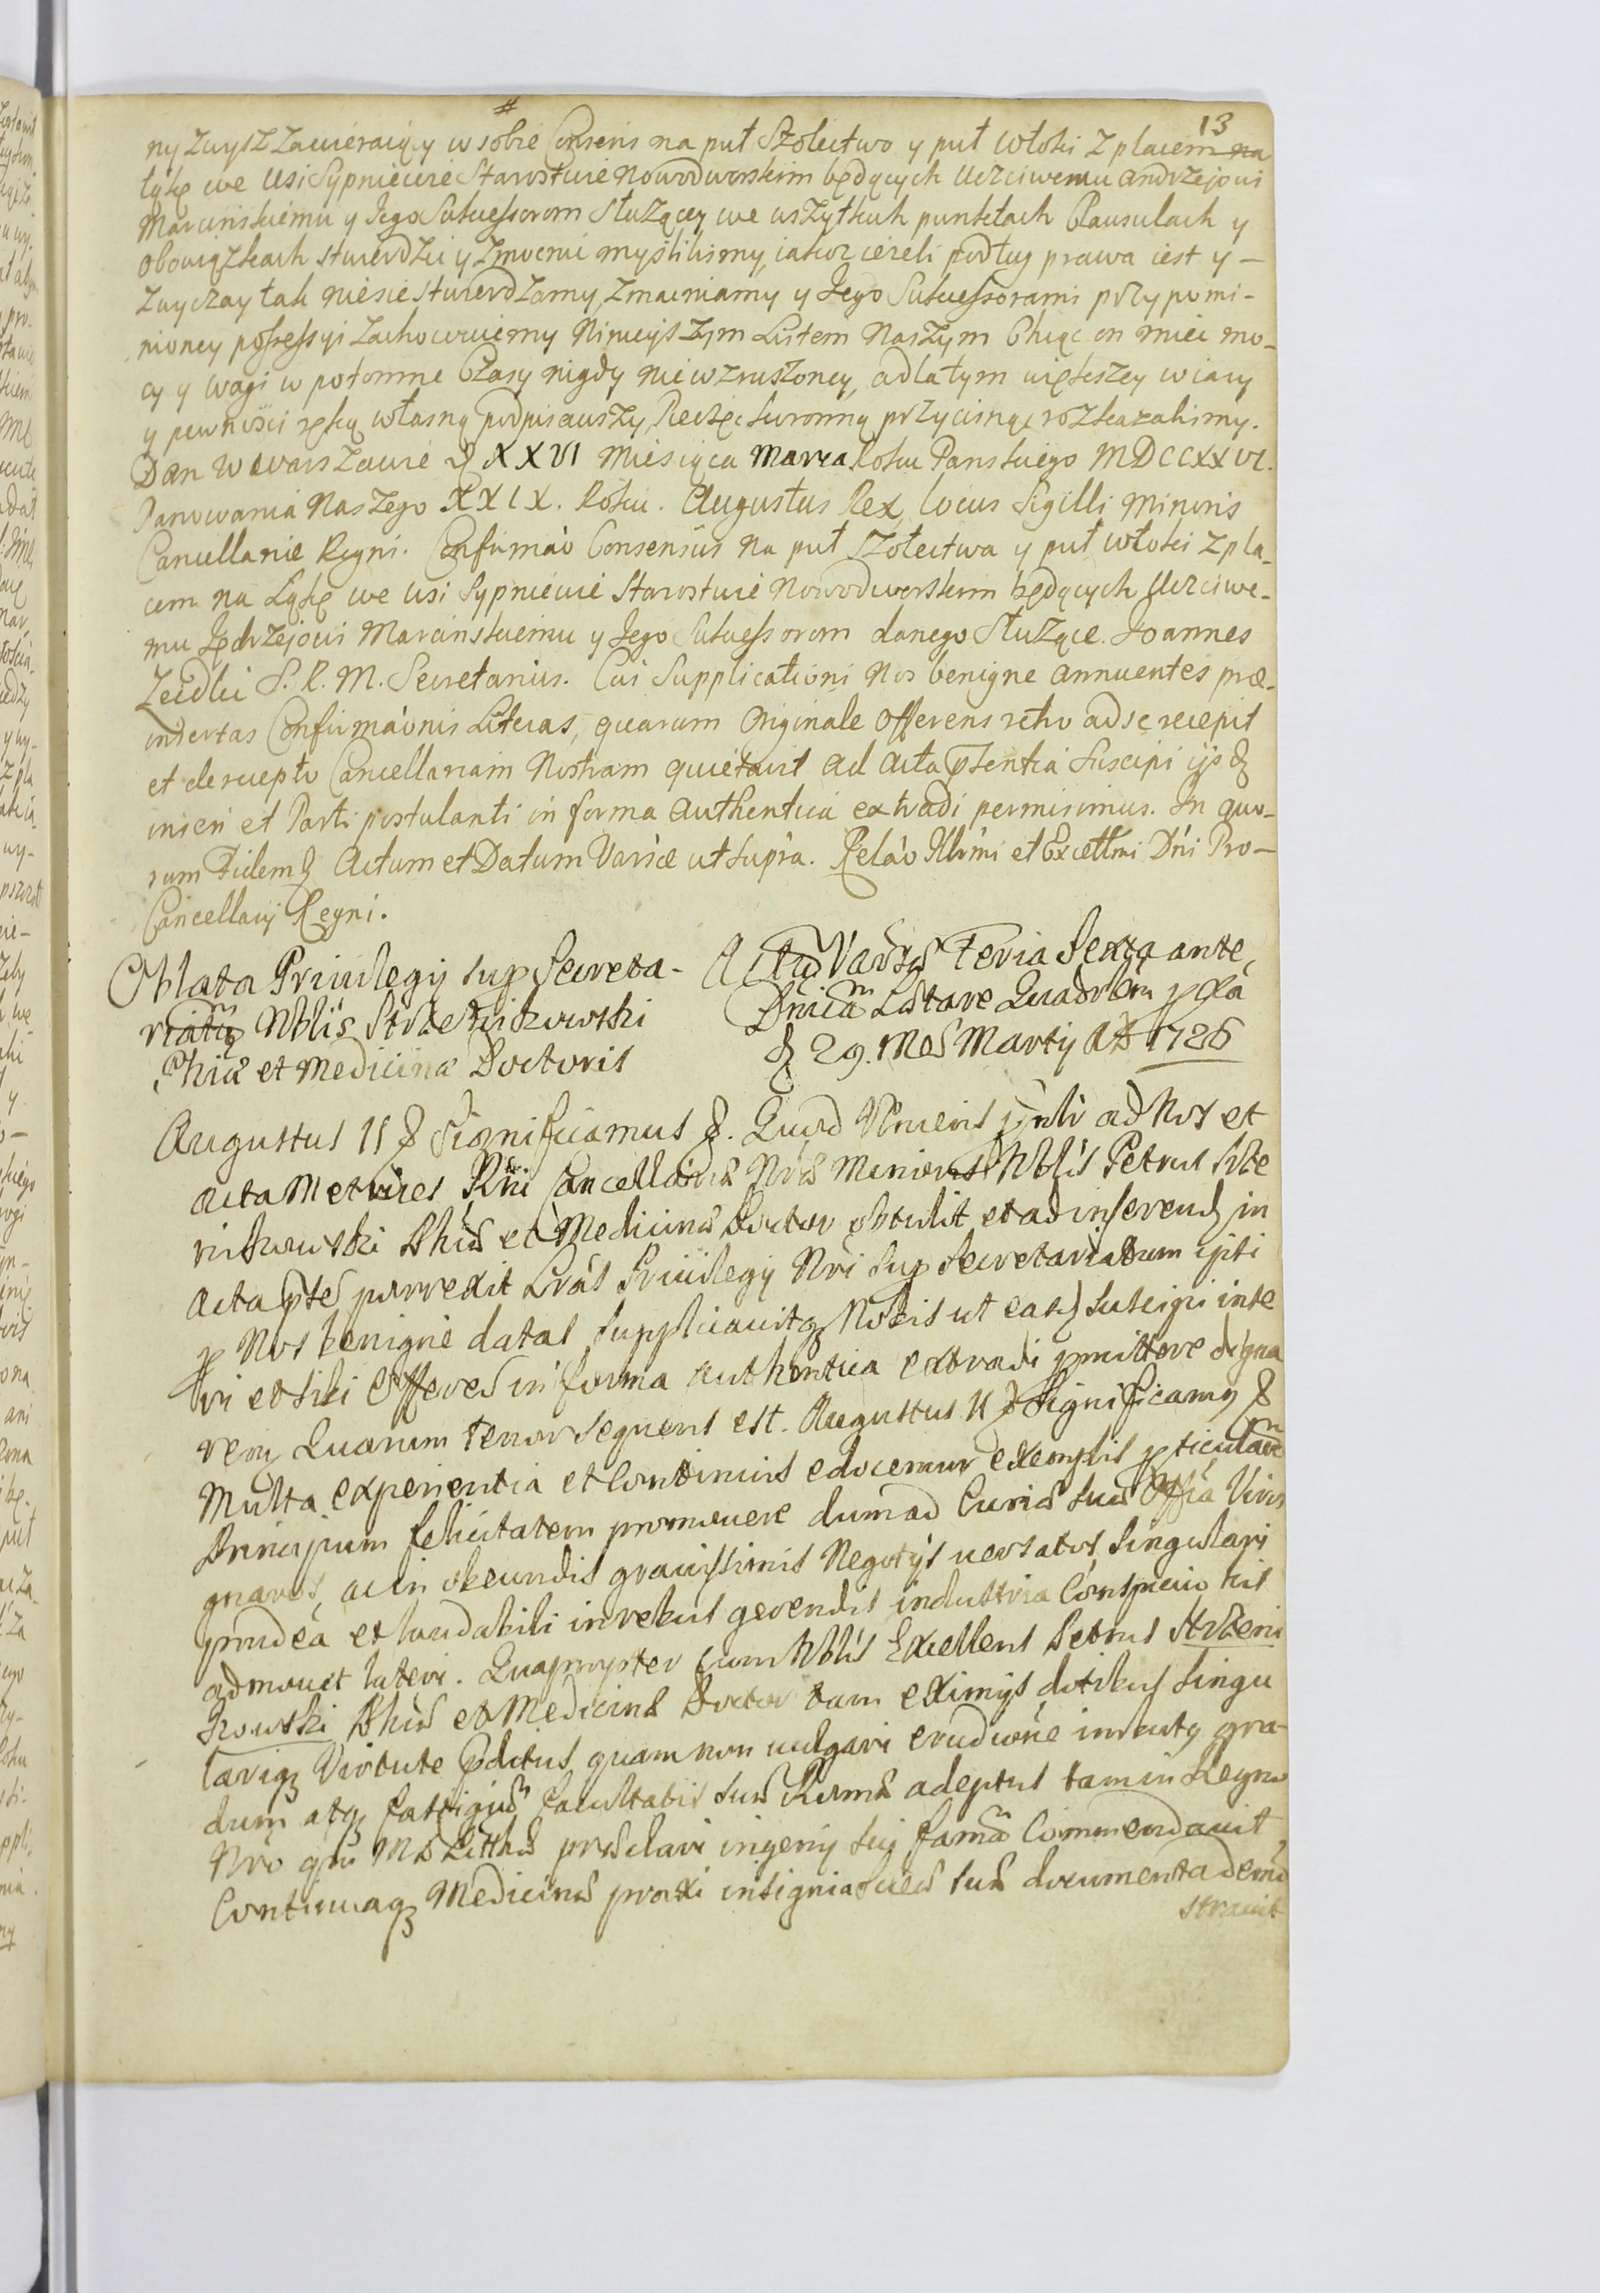 13
#
ny zwysz zawieraiący w sobie Consens na puł Szołectwo y puł Włoki z placem na
łąkę we Wsi Sypniewie Starostwie Nowodworskim będących Uczciwemu Andrzejowi
Marcinskiemu y Jego Sukcessorom służącey we wszytkich punktach Clausulach y
obowiązkach stwierdzić y zmocnić myślilismy, iakoz ieżeli podług prawa iest y –
zwyczay tak niesie stwierdzamy, zmacniamy y Jego Sukcessorami przy pomi-
nioney possessyi zachowuiemy Ninieyszym Listem Naszym Chcąc on mieć mo-
cy y wagi w potomne Czasy nigdy niewzruszoney, a dla tym większey wiary
y pewności ręką własną podpisawszy, Pieczęć koronną przycisnąć rozkazalismy.
Dan w Warszawie d XXVI Miesiąca Marca Roku Panskiego MDCCXXVI.
Panowania Naszego XXIX. Roku. Augustus Rex, locus Sigilli Minoris
Cancellariæ Regni. Confirmao Consensus na puł Szołectwa y puł Włoki z pla-
cem na Łąkę we Wsi Sypniewie Starostwie Nowodworskim będących Uczciwe-
mu Jędrzejowi Marcinskiemu y Jego Sukcessorom danego Służące. Joannes
Zeidlic S. R. M. Secretarius. Cui Supplicationi Nos benigne annuentes præ-
insertas Confirmaonis Literas, quarum Originale Offerens retro ad se recepit
et de recepto Cancellariam Nostram quietavit ad Acta pñsentia Suscipi ijsq
inseri et Parti postulanti in forma authentica extradi permisimus. In quo-
rum Fidem Actum et Datum Varsæ ut supra. Relao Illrmi et Excellmi Dni Pro-
Cancellarij Regni.
Oblata Privilegij sup Secreta-
riatu Nblis Strzenikowski
Phiæ et Medicinæ Doctoris
Actu Varsæ Feria Sexta ante
Dnicam Lætare Quadrlem pxa
d 29. Mes Martij AD 1726
Augustus II Significamus. Quod Veniens psnlr ad Nos et
Acta Metrices Rni Cancellariæ Nræ Minoris Nblis Petrus Strze
nikowski Phiæ et Medicinæ Doctor obtulit et ad inserend in
Acta pte porrexit Lras Privilegij Nri sup Secretariatum ipsi
p Nos benigne datas supplicavitq Nobis ut easd suscipi inse
ri et sibi Offeren in forma authentica extradi pmittere digna
remr Quarum tenor sequens est. Augustus II Significamus
Multa experientia et Continuis edocemur exemplis pticularem
Principum felicitatem promovere dum ad Curiæ suæ Offia Viros
gnaros, ac in obeundis gravissimis Negotijs versatos, singulari
prudea et laudabili in rebus gerendis industria Conspicuo suo
admovet lateri. Quapropter cum Nblis Excellens Petrus Strzeni
kowski Phiæ et Medicinæ Doctor tam eximijs dotibus singu
lariq Virtute pditus, quam non vulgari erudione imbutq gra-
dum atq fastigium facultatis suæ Romæ adeptus tam in Regno
Nro qm MD Litthæ præclari ingenij sui famam Commendavit
Continuaq Medicinæ praxi insignia scieæ suæ documenta demon
stravit